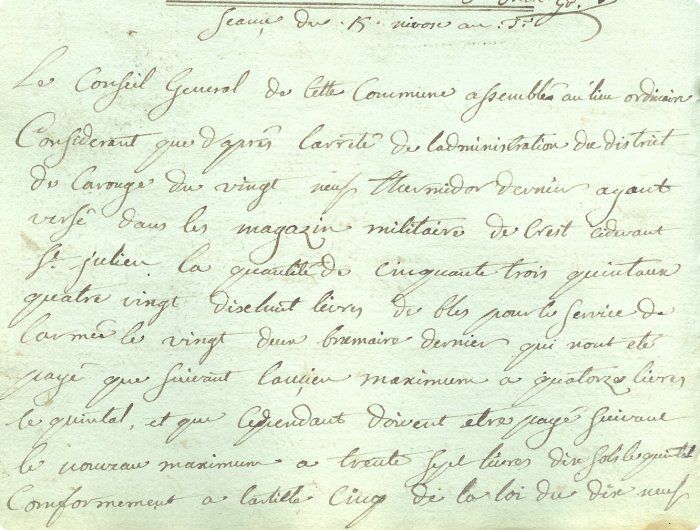 Seance du 15 nivose an 3
Le Conseil General de Cette Commune assemblés au lieu ordinaire
Considerant que d'après l'arrêté de ladministration du district
de Carouge du vingt neuf thermidor dernier ayant
versé dans les magazin militaire de Crest cidevant
St julien la quantité de cinquante trois quintaux
quatre vingt dixehuit livres de bles pour le service de
larmée le vingt deux brumaire dernier qui nont eté
payé que suivant lancien maximum a quatorze livres
le quintal, et que cependant doivent etre payé suivant
le nouveau maximum a trente sept livres dix sols le quintal
Comformement a lartille Cinq de la loi du dix neuf